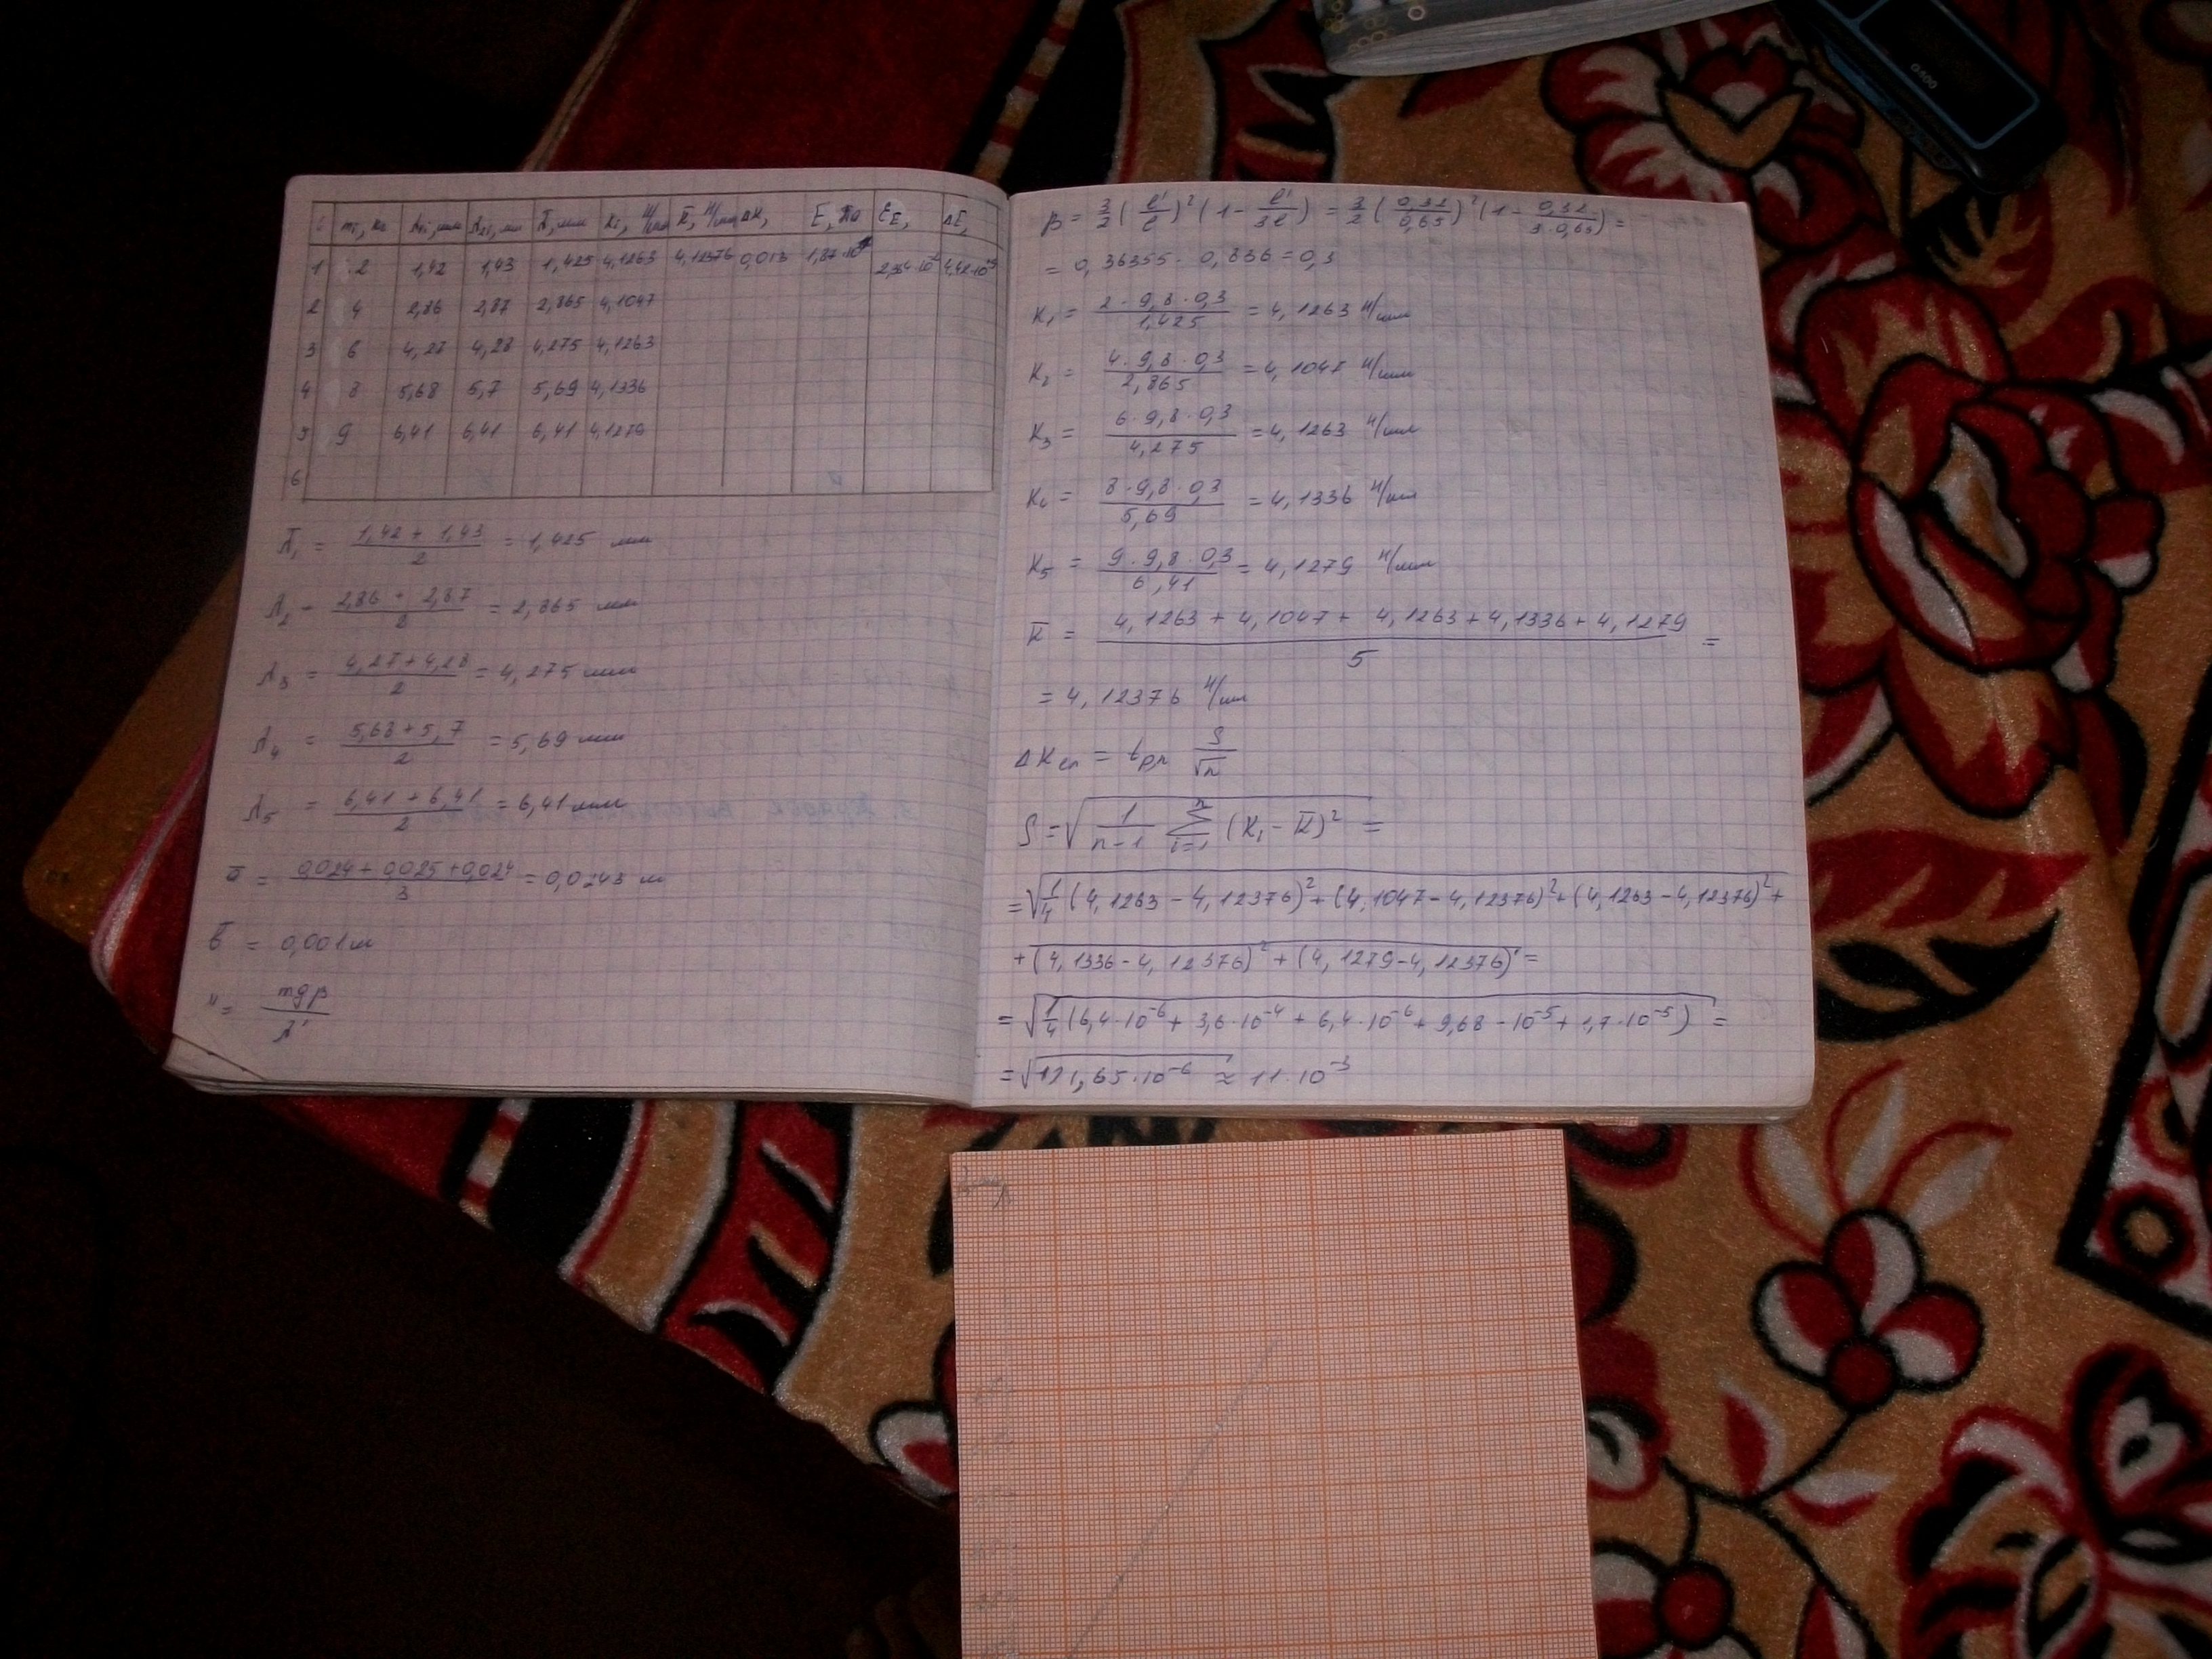 i mᵢ, кг λ₁ᵢ, мм λ₂ᵢ, мм λ̄, мм Kᵢ, Н/мм K̄, Н/мм ΔK, E, Па ε_E, ΔE,
1 2 1,42 1,43 1,425 4,1263 4,12376 0,013 1,87·10
2 4 2,86 2,87 2,865 4,1047
3 6 4,27 4,28 4,275 4,1263
4 8 5,68 5,7 5,69 4,1336
5 9 6,41 6,41 6,41 4,1279
6
λ̄₁ = (1,42 + 1,43)/2 = 1,425 мм
λ₂ - (2,86 + 2,87)/2 = 2,865 мм
λ₃ = (4,27+4,28)/2 = 4,275 мм
λ₄ = (5,68+5,7)/2 = 5,69 мм
λ₅ = (6,41+6,41)/2 = 6,41 мм
ā = (0,024+0,025+0,024)/3 = 0,0243 м
b̄ = 0,001 м
K = mgβ/λ'
β = 3/2 (l'/l)² (1 - l'/3l) = 3/2 (0,32/0,65)² (1 - 0,32/3·0,65) =
= 0,36355 · 0,836 = 0,3
K₁ = (2·9,8·0,3)/1,425 = 4,1263 Н/мм
K₂ = (4·9,8·0,3)/2,865 = 4,1047 Н/мм
K₃ = (6·9,8·0,3)/4,275 = 4,1263 Н/мм
K₄ = (8·9,8·0,3)/5,69 = 4,1336 Н/мм
K₅ = (9·9,8·0,3)/6,41 = 4,1279 Н/мм
K̄ = (4,1263 + 4,1047 + 4,1263 + 4,1336 + 4,1279)/5 =
= 4,12376 Н/мм
ΔK сл = t_{p,n} S/√n
S = √(1/(n-1) Σ_{i=1}^{n} (K₁ - K̄)²) =
= √(1/4 (4,1263 - 4,12376)² + (4,1047 - 4,12376)² + (4,1263 - 4,12376)² +
+ (4,1336 - 4,12376)² + (4,1279 - 4,12376)' =
= √(1/4 (6,4·10⁻⁶ + 3,6·10⁻⁴ + 6,4·10⁻⁶ + 9,68 - 10⁻⁵ + 1,7·10⁻⁵) =
= √121,65·10⁻⁶ ≈ 11·10⁻³